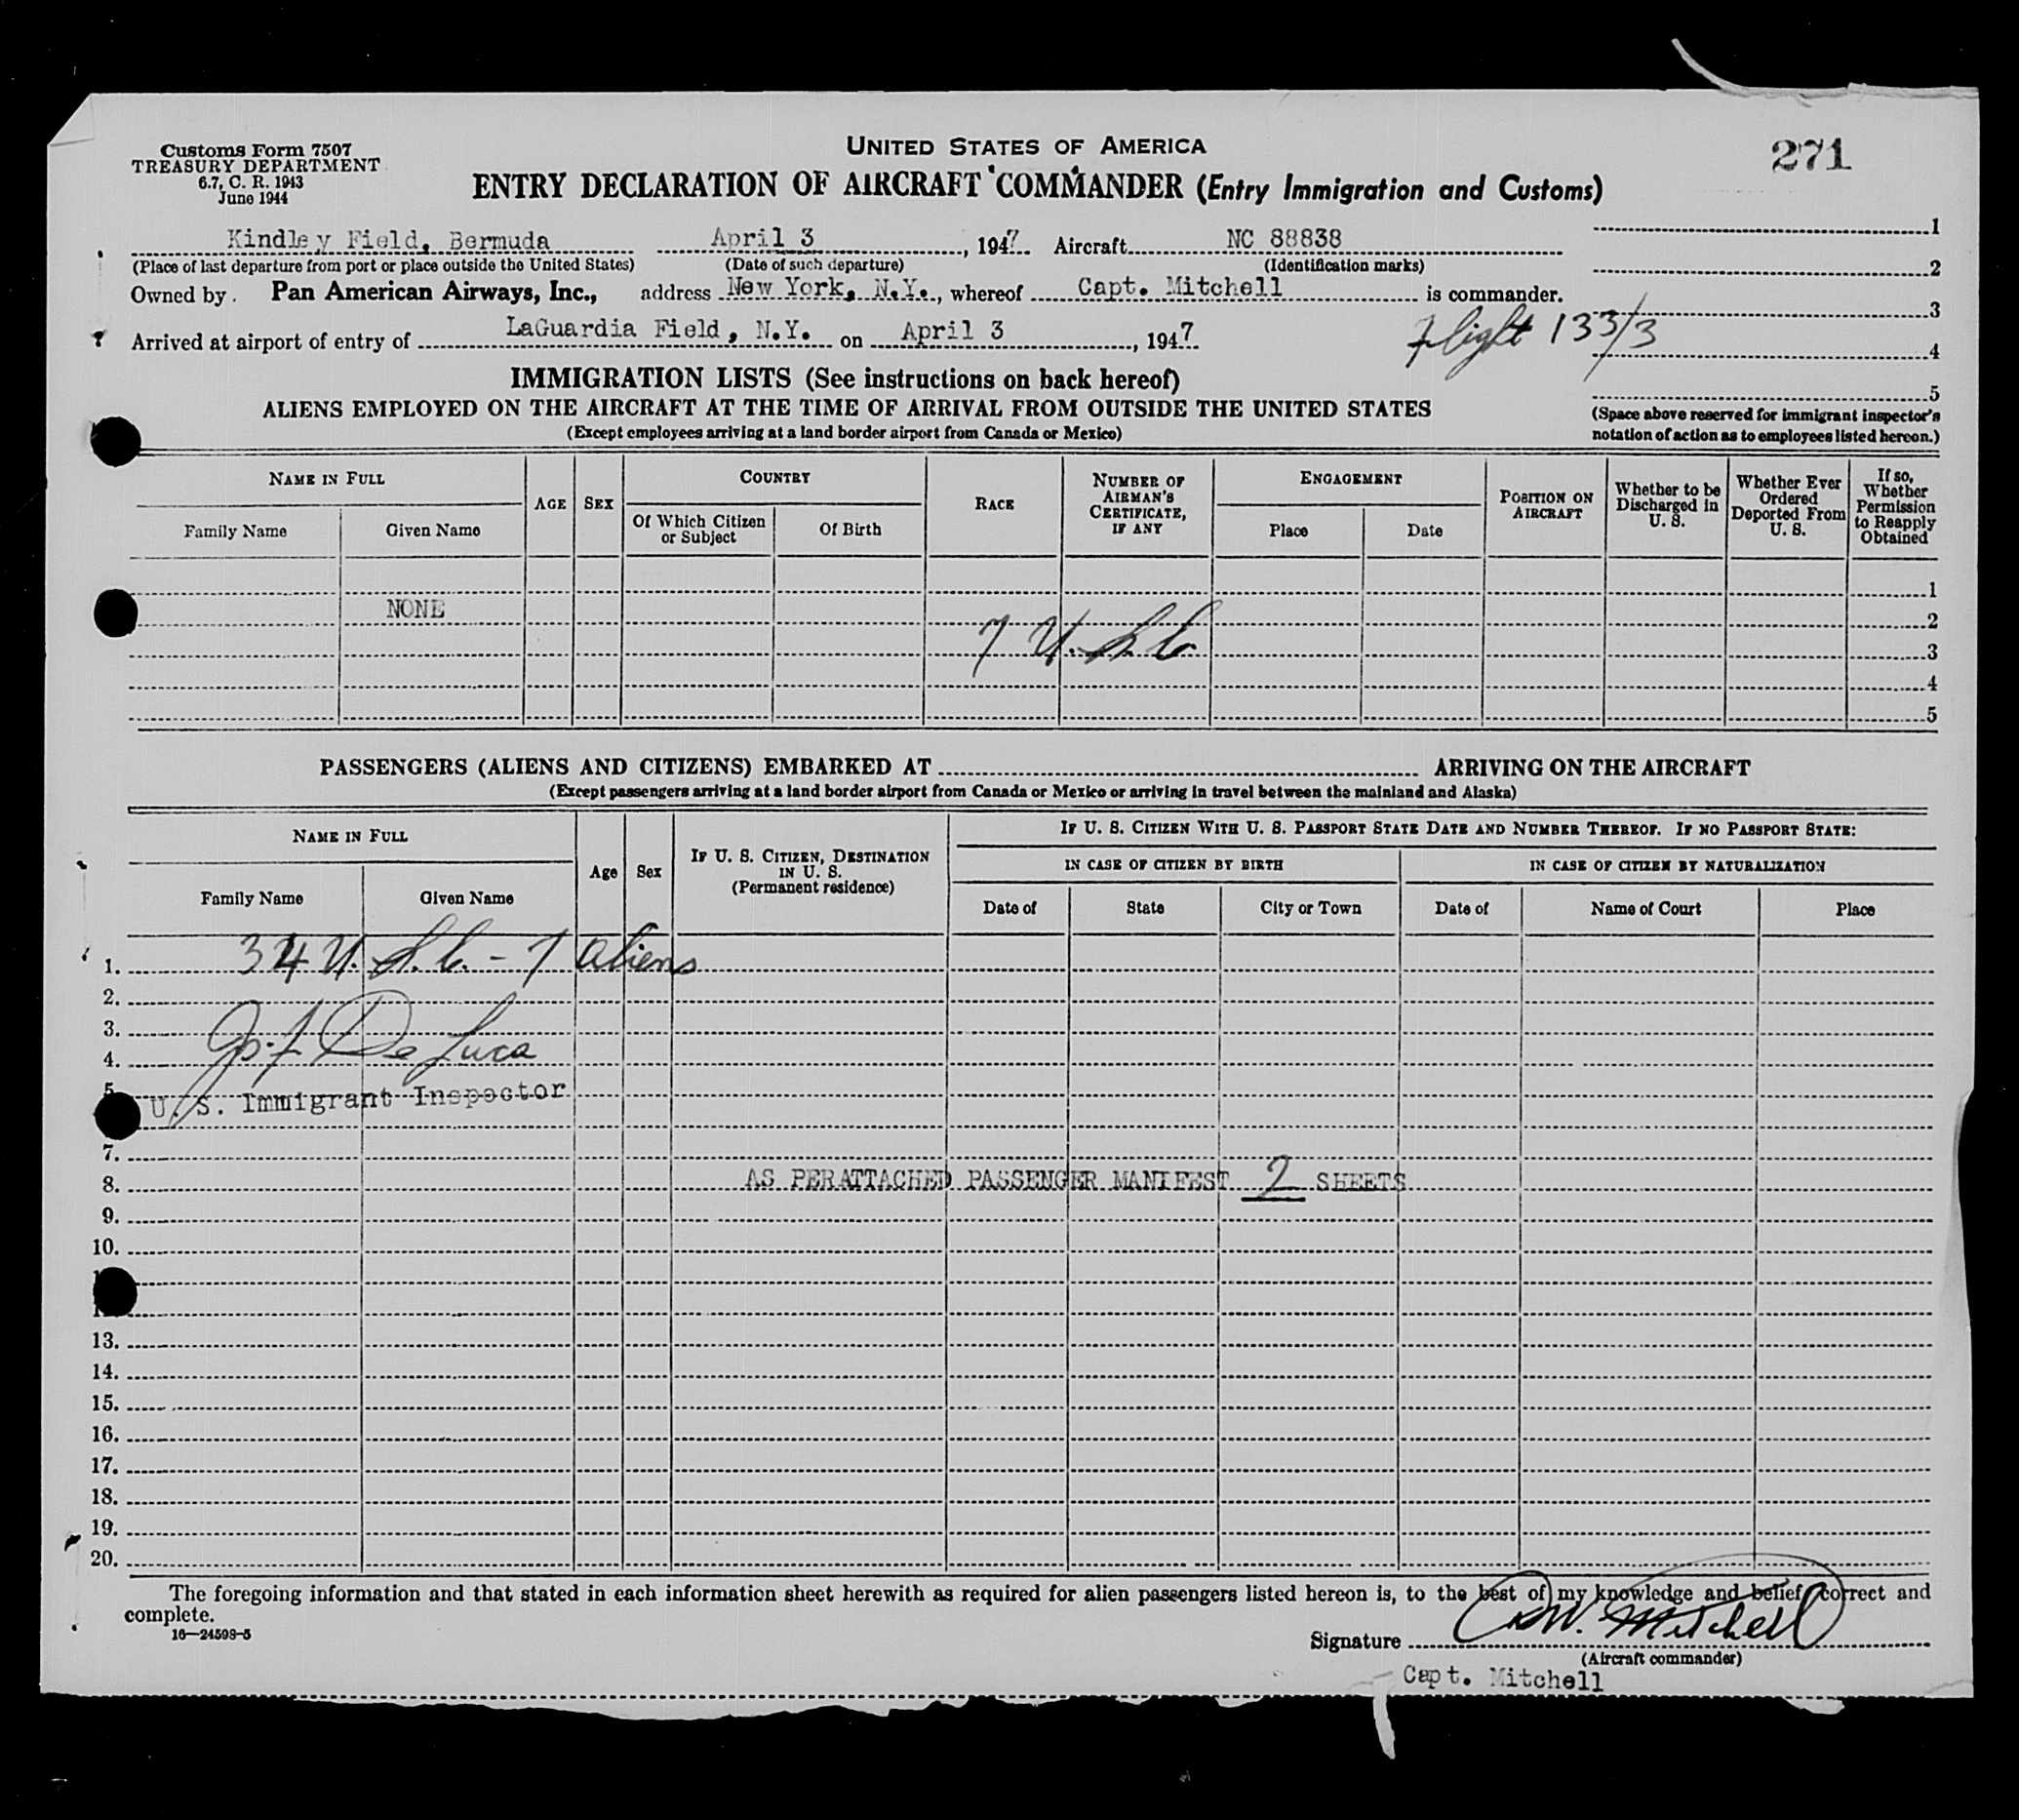 Customs Form 7507
TREASURY DEPARTMENT
6.7, C. R. 1943
June 1944
UNITED STATES OF AMERICA
271
ENTRY DECLARATION OF AIRCRAFT COMMANDER (Entry Immigration and Customs)
Kindley Field, Bermuda April 3, 1947. Aircraft NC 88838
(Place of last departure from port or place outside the United States) (Date of such departure) (Identification marks)
Owned by. Pan American Airways, Inc., address New York, N.Y., whereof Capt. Mitchell is commander.
Arrived at airport of entry of LaGuardia Field, N.Y. on April 3, 1947.
Flight 133/3
1
2
3
4
5
(Space above reserved for immigrant inspector's
notation of action as to employees listed hereon.)
IMMIGRATION LISTS (See instructions on back hereof)
ALIENS EMPLOYED ON THE AIRCRAFT AT THE TIME OF ARRIVAL FROM OUTSIDE THE UNITED STATES
(Except employees arriving at a land border airport from Canada or Mexico)
NAME IN FULL
Family Name Given Name
AGE
SEX
COUNTRY
Of Which Citizen or Subject
Of Birth
RACE
NUMBER OF AIRMAN'S CERTIFICATE, IF ANY
ENGAGEMENT
Place Date
POSITION ON AIRCRAFT
Whether to be Discharged in U. S.
Whether Ever Ordered Deported From U. S.
If so, Whether Permission to Reapply Obtained
1
NONE 2
7 U.S.C. 3
4
5
PASSENGERS (ALIENS AND CITIZENS) EMBARKED AT ARRIVING ON THE AIRCRAFT
(Except passengers arriving at a land border airport from Canada or Mexico or arriving in travel between the mainland and Alaska)
NAME IN FULL
Family Name Given Name
Age
Sex
IF U. S. CITIZEN, DESTINATION IN U. S.
(Permanent residence)
IF U. S. CITIZEN WITH U. S. PASSPORT STATE DATE AND NUMBER THEREOF. IF NO PASSPORT STATE:
IN CASE OF CITIZEN BY BIRTH
IN CASE OF CITIZEN BY NATURALIZATION
Date of State City or Town Date of Name of Court Place
1. 34 U.S.C. - 7 aliens
2.
3.
4. De Luca
5. U. S. Immigrant Inspector
7.
8. AS PER ATTACHED PASSENGER MANIFEST 2 SHEETS
9.
10.
13.
14.
15.
16.
17.
18.
19.
20.
The foregoing information and that stated in each information sheet herewith as required for alien passengers listed hereon is, to the best of my knowledge and belief, correct and
complete.
16—24598-5
Signature W. Mitchell
(Aircraft commander)
Capt. Mitchell